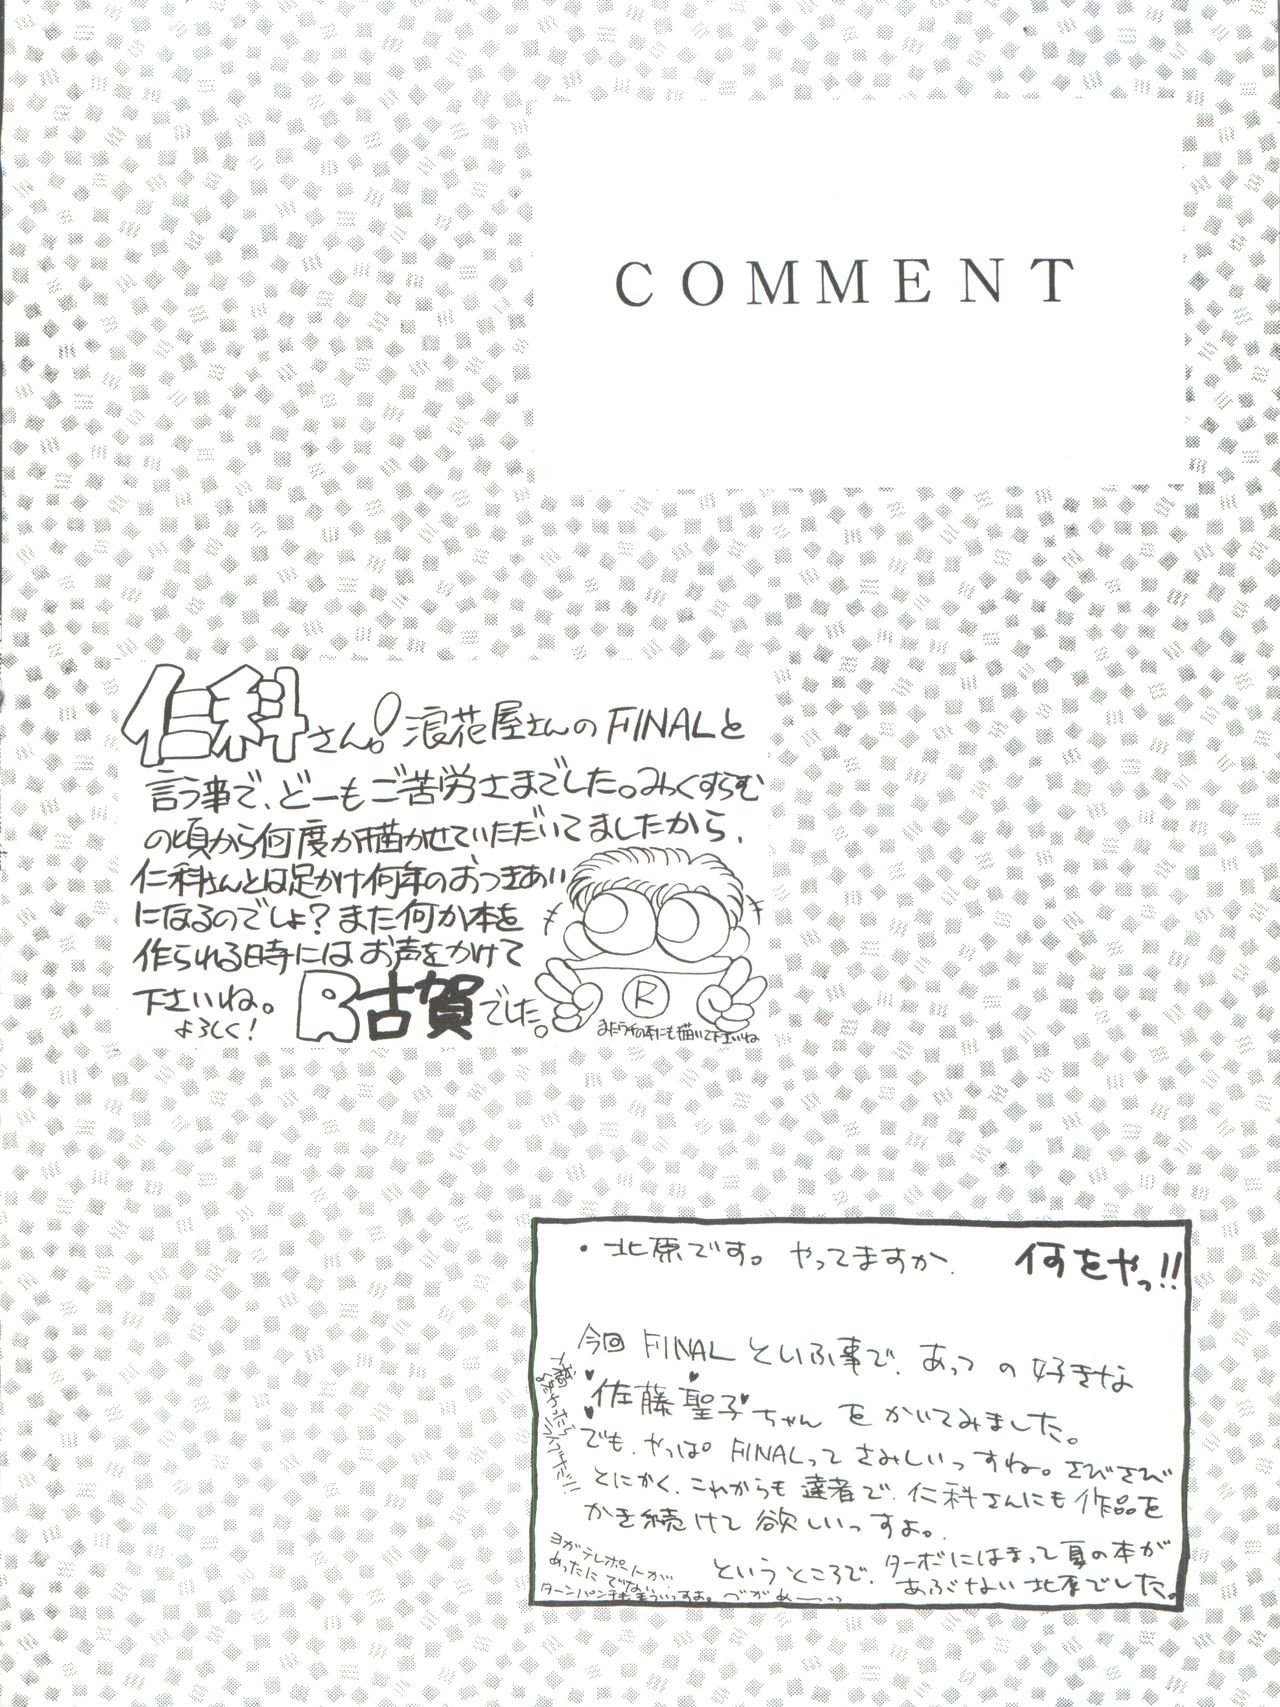 COMMENT
仁科さん!浪花屋さんのFINALと
言う事で、どーもご苦労さまでした。みっくすらむ
の頃から何度か描かせていただいてましたから、
仁科さんとは足かけ何年のおつきあい
になるのでしょ?また何か本を
作られる時にはお声をかけて
下さいね。
よろしく!
R古賀でした。
R
またうちの本にも描いて下さいね
・北原です。やってますか、
何をやっ!!
今回FINALといふ事で、あっの好きな
佐藤聖子ちゃんをかいてみました。
でも、やっぱFINALってさみしいっすね。さびさび
とにかく、これからも達者で、仁科さんにも作品を
かき続けて欲しいっすよ。
というところで、ターボにはまって夏の本が
あぶない北原でした。
終わったら
ライブだ!!
ヨガテレポートが
ターンパンチももういっすよ。づがめーっっ